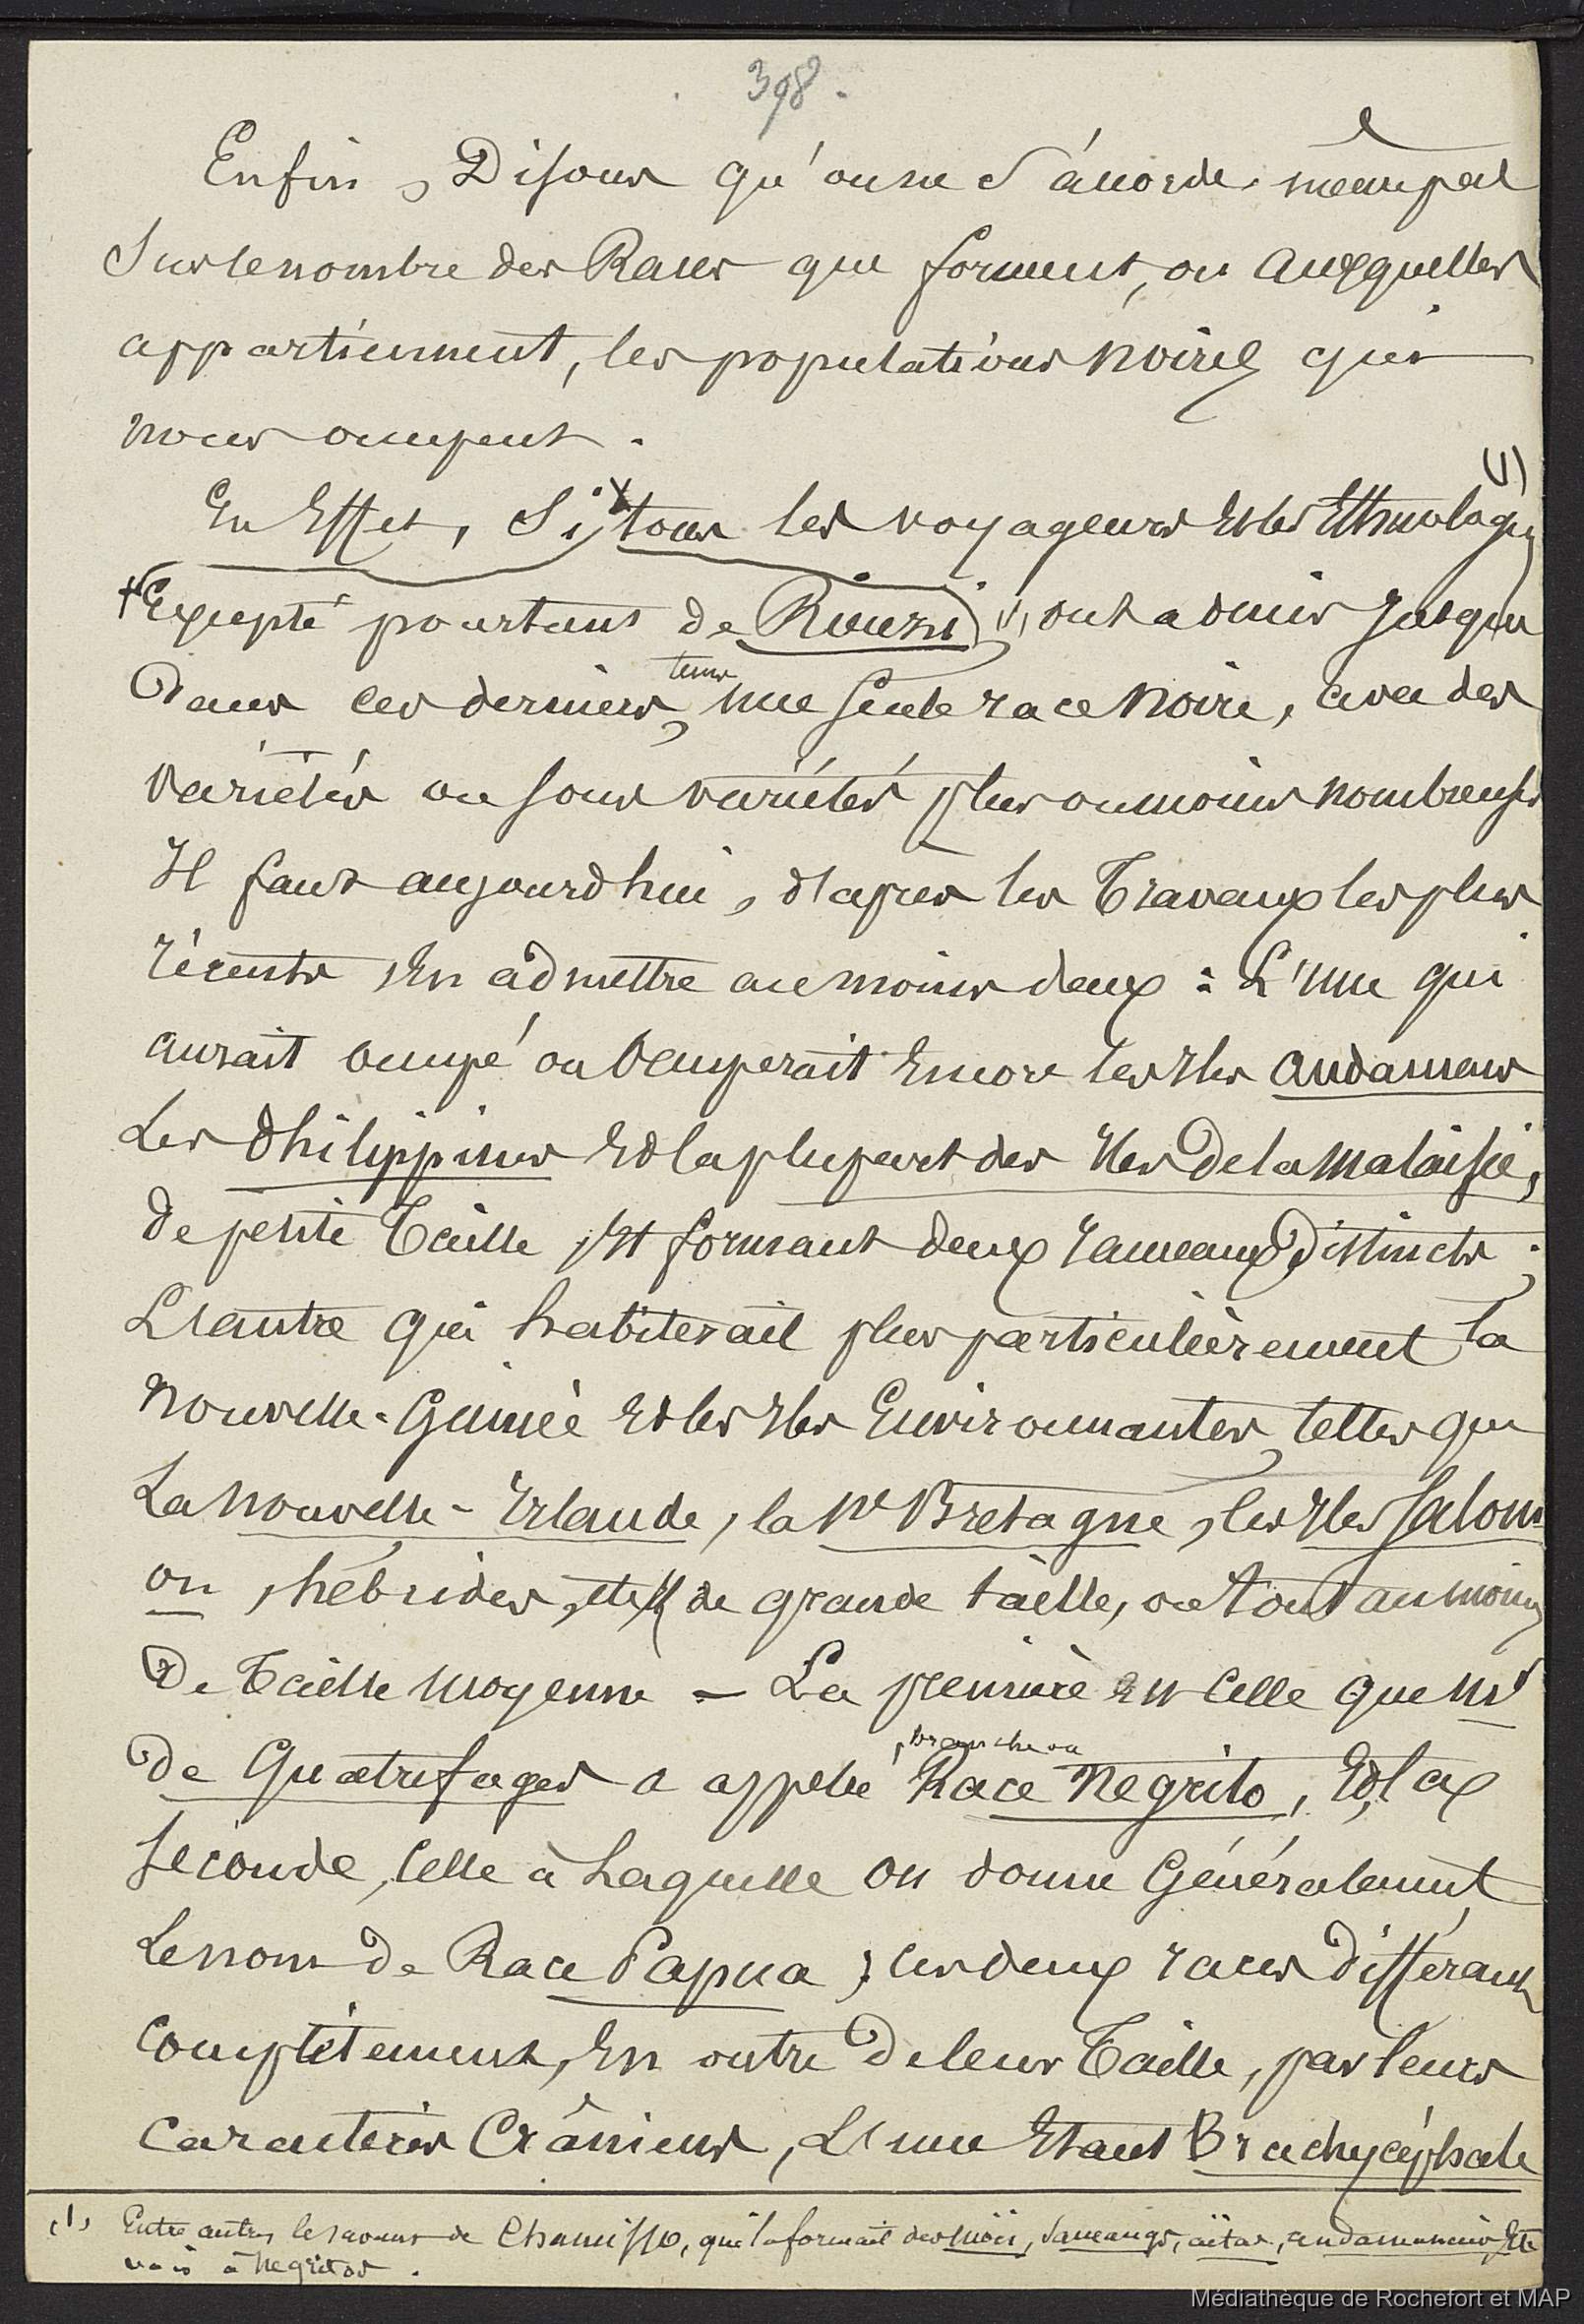 398.
Enfin, Disons qu'on ne s'accorde même pas
Sur le nombre des Races que forment, ou auxquelles
appartiennent, les populations noires qui
nous occupent.
En Effet, Si, tous les voyageurs et les Ethnologues (1)
+ Excepté pourtant de Rienzi (1), ont admis jusque
Dans ces derniers tems, une seule race noire, avec des
variétés ou sous variétés plus ou moins nombreuses
Il faut aujourd'hui, d'après les Travaux les plus
récents, en admettre au moins deux : L'une qui
aurait occupé ou occuperait encore les Iles Andaman
Les Philippines et la plupart des Iles de la Malaisie,
de petite Taille, et formant deux rameaux distincts ;
L'autre qui habiterait plus particulièrement la
Nouvelle-Guinée et les Iles Environnantes, telles que
La Nouvelle-Irlande, la Nle Bretagne, les Iles Salom
on, hébrides, etc, de grande taille, ou tout au moins
De Taille moyenne - La première est celle que Mr
de Quatrefages a appelée branche ou Race Negrito, Et la
seconde, celle à Laquelle on donne Généralement
Le nom de Race Papua ; ces deux races différant
complètement, En outre de leur Taille, par leurs
caractères Crâniens, L'une Etant Brachycéphale
(1) Entre autres le savant de Chamisso, qui la formait des
à Negritos.
Médiathèque de Rochefort et MAP